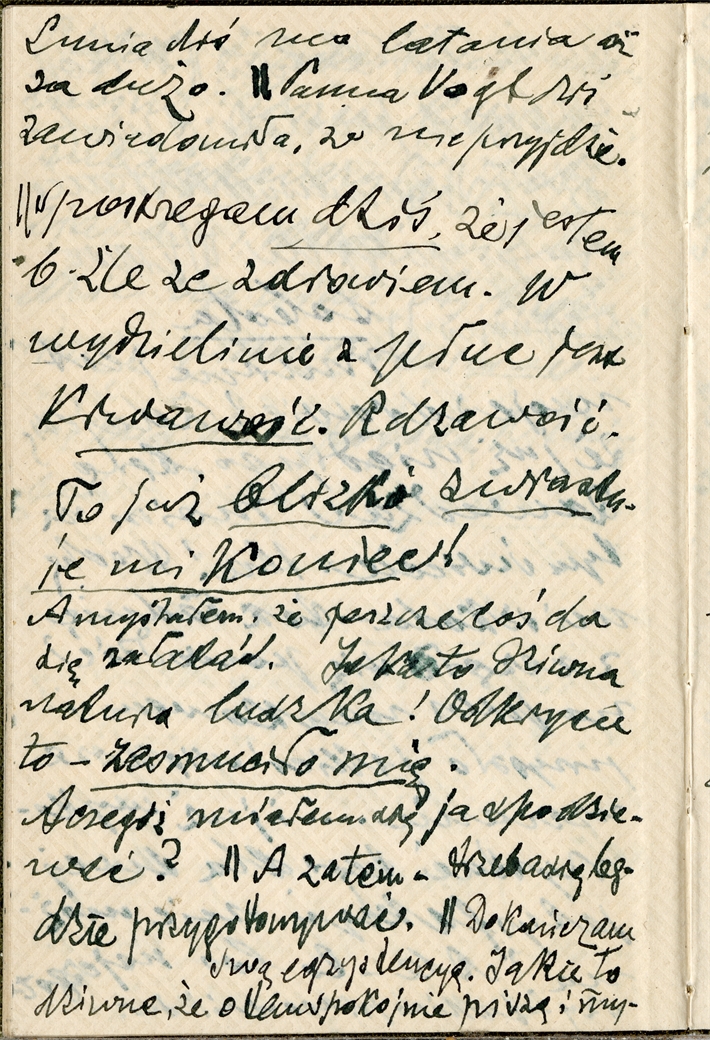 Lunia dziś ma latania aż
za dużo. || Panna Vogt dziś
zawiadomiła, że nie przyjdzie.
|| Spostrzegam dziś, że jestem
b. źle ze zdrowiem. W
wydzielinie z płuc jest
Krwawość. Rdzawość.
To już blizki zwiastu-
je mi koniec!
A myślałem, że jeszcze coś da
się załatać. Jaka to dziwna
natura ludzka! Odkrycie
to – zasmuciło mię.
A czegóż miałem się ja spodzie-
wać? || A zatem – trzeba się bę-
dzie przygotowywać. || Dokańczam
swą egzystencyą. Jakie to
dziwne, że o tem spokojnie piszę i my-